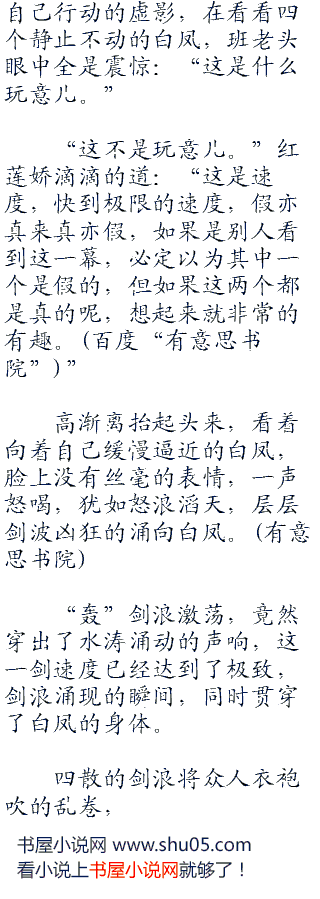 自己行动的虚影，在看看四
个静止不动的白凤，班老头
眼中全是震惊：“这是什么
玩意儿。”
“这不是玩意儿。”红
莲娇滴滴的道：“这是速
度，快到极限的速度，假亦
真来真亦假，如果是别人看
到这一幕，必定以为其中一
个是假的，但如果这两个都
是真的呢，想起来就非常的
有趣。(百度“有意思书
院”)”
高渐离抬起头来，看着
向着自己缓慢逼近的白凤，
脸上没有丝毫的表情，一声
怒喝，犹如怒浪滔天，层层
剑波凶狂的涌向白凤。(有意
思书院)
“轰”剑浪激荡，竟然
穿出了水涛涌动的声响，这
一剑速度已经达到了极致，
剑浪涌现的瞬间，同时贯穿
了白凤的身体。
四散的剑浪将众人衣袍
吹的乱卷，
书屋小说网 www.shu05.com
看小说上书屋小说网就够了！